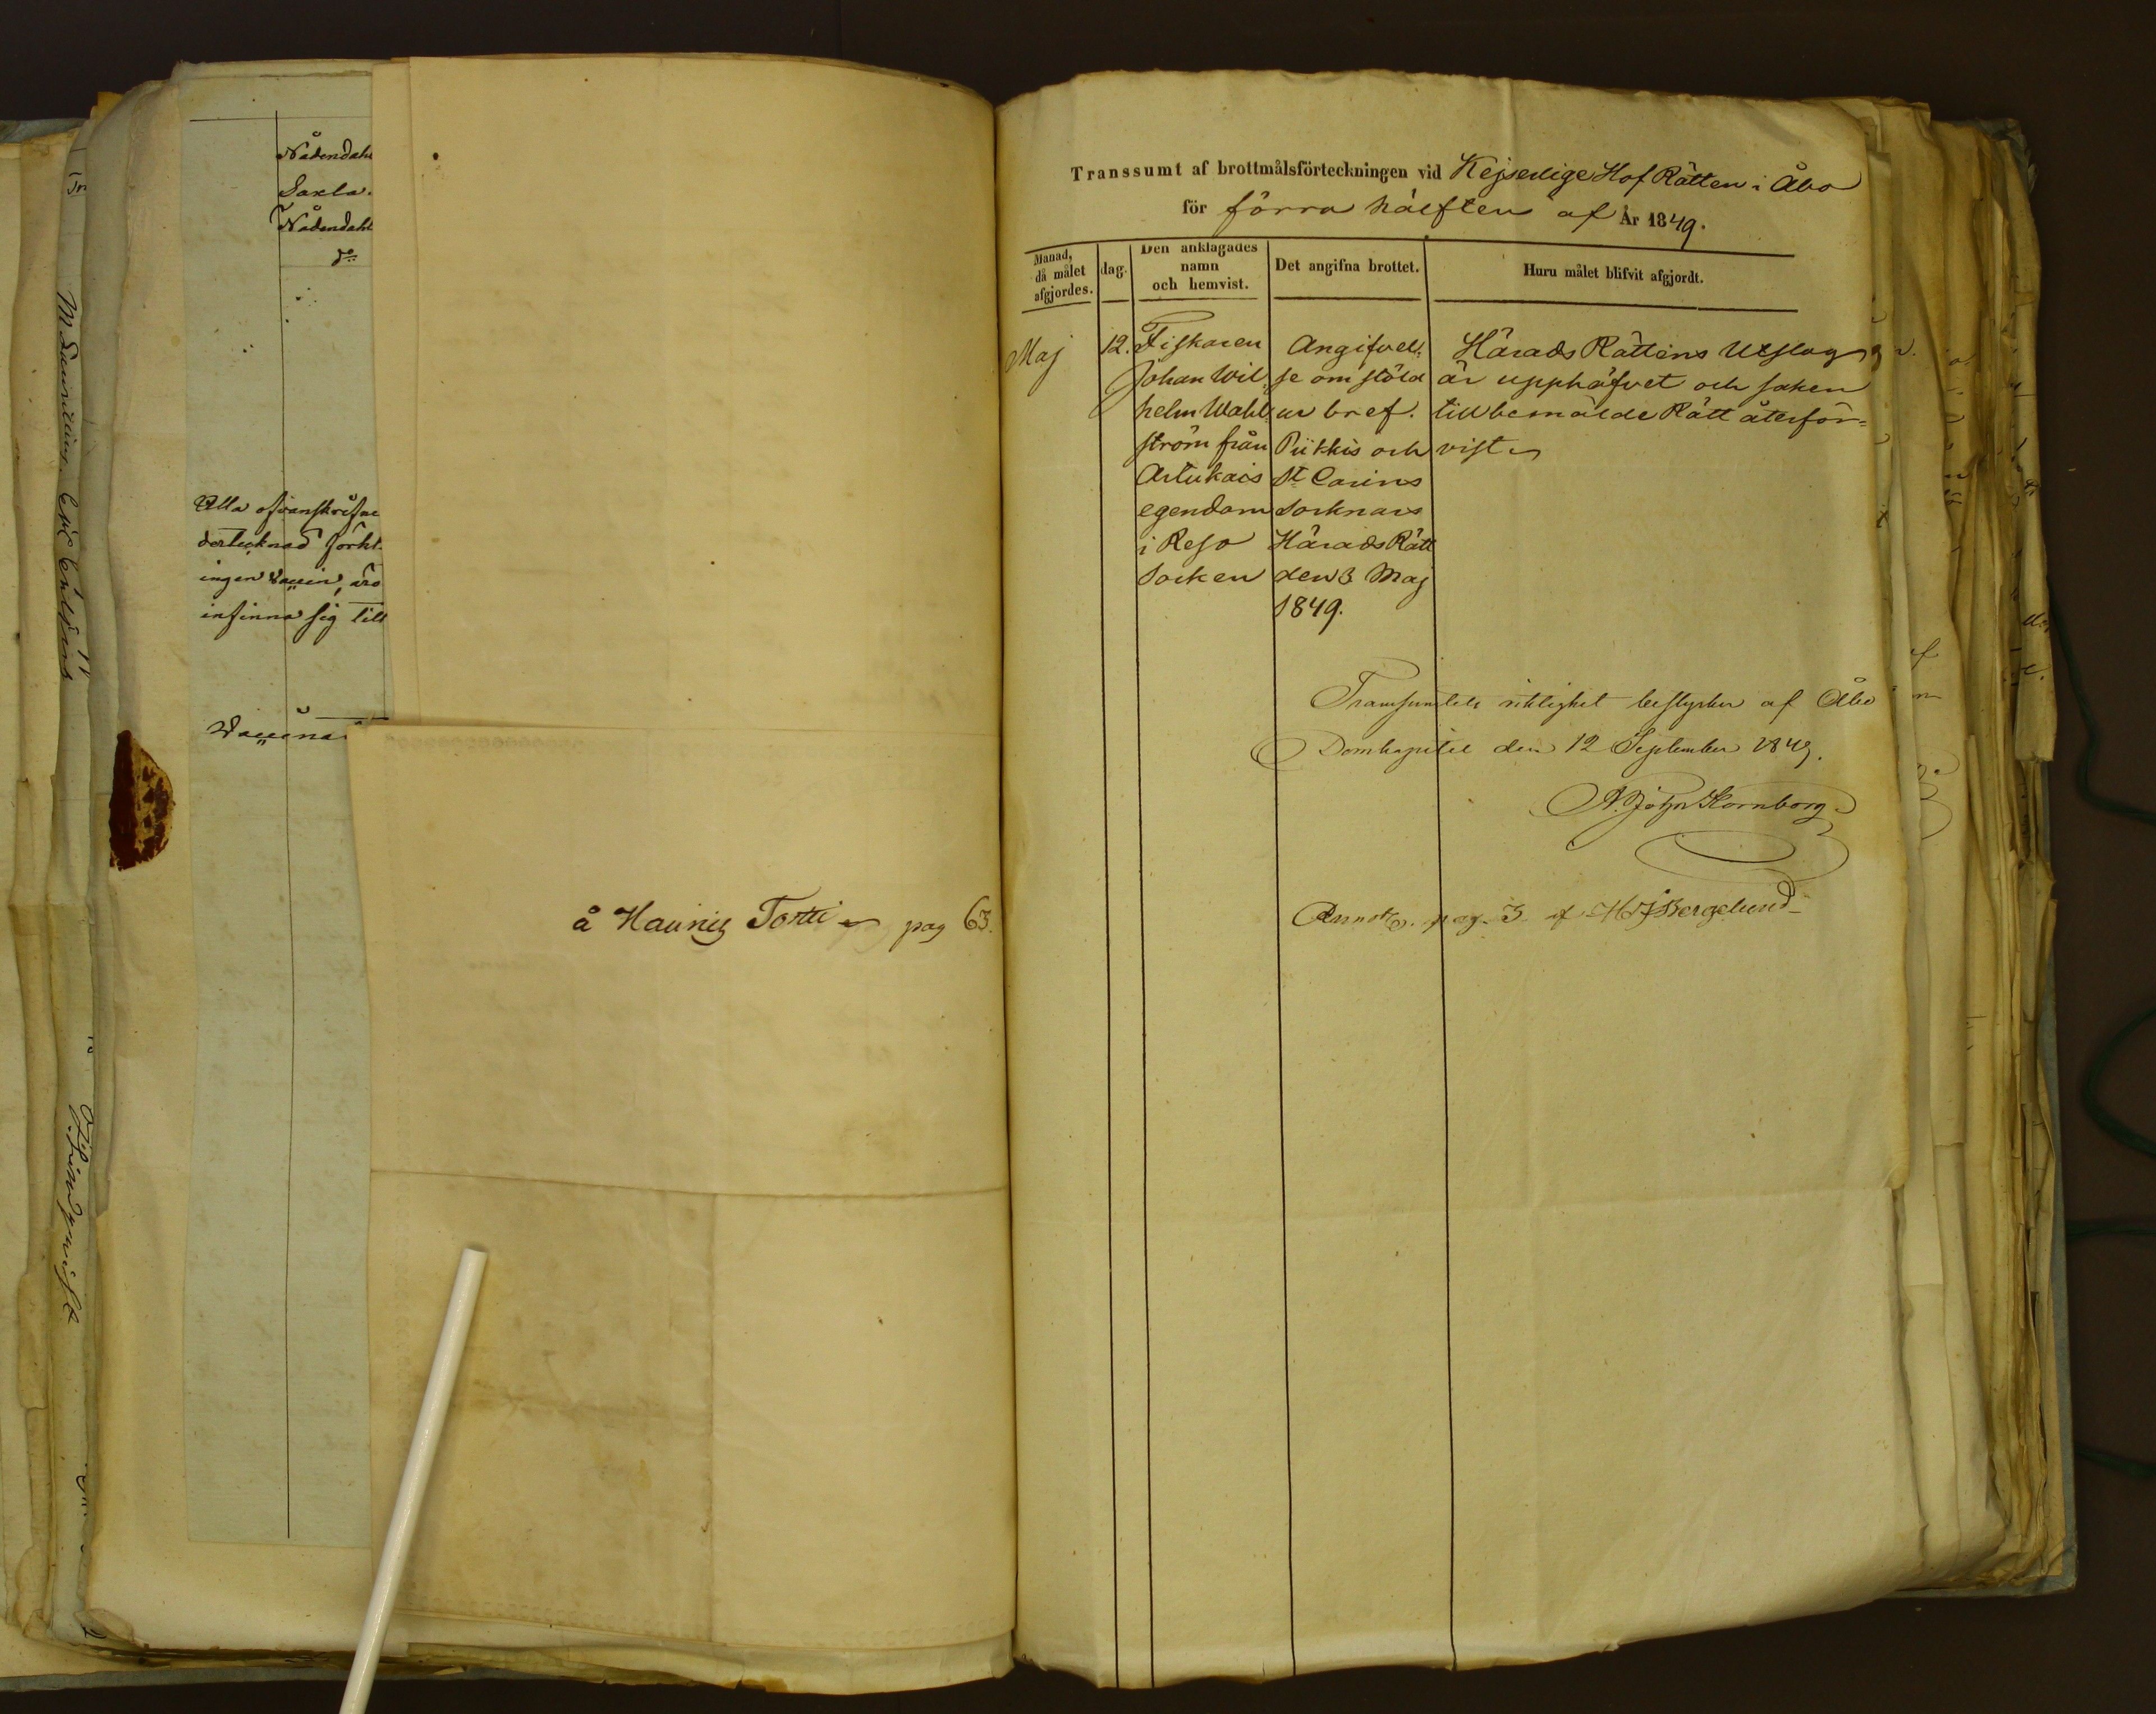 Nådendahl
Saxla.
Nådendahl
do
Alla ofvanskrifne
dertecknad förkl.
ingen vaccin, äro
infinna sig till
å Haunis Tortti pag 63.
Transsumt af brottmålsförteckningen vid Kejserlige Hof Rätten i Åbo
för förra hälften af År 1849.
Månad, då målet afgjordes.
dag.
Den anklagades namn och hemvist.
Det angifna brottet.
Huru målet blifvit afgjordt.
Maj
12.
Fiskaren
Johan Wil-
helm Wahl-
ström från
Artukais
egendom
i Reso
Socken
Angifvel-
se om stöld
ur bref.
Piikkis och
St Carins
Socknars
Härads Rätt
den 3 Maj
1849.
Härads Rättens Utslag
är upphäfvet och saken
till bemälde Rätt återför-
vist
Transumtets riktighet bestyrker af Åbo
Domkapitel den 12 September 1849.
Annot. pag. 3 af H J Bergelund